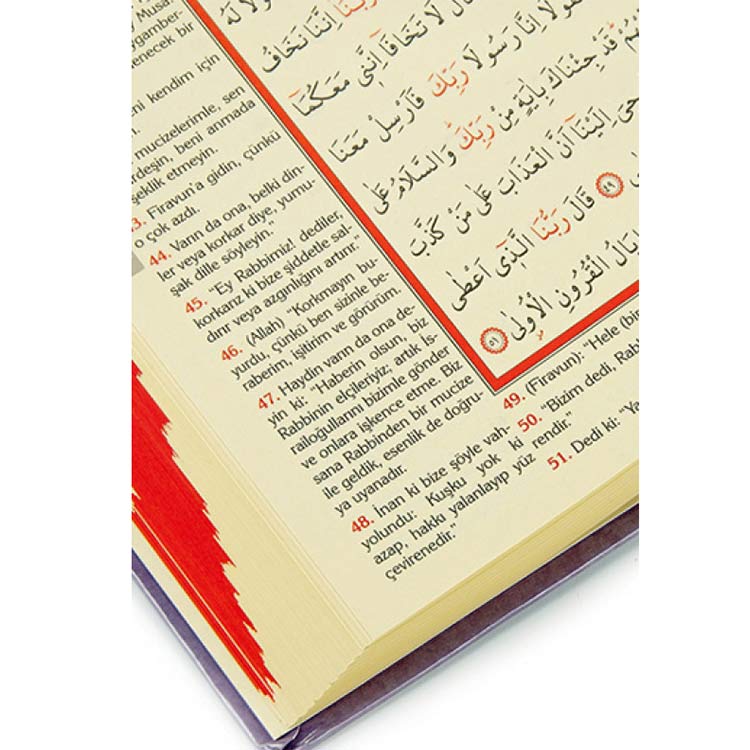 y Musa!
ygamber-
enecek bir
ni kendim için
mucizelerimle, sen
rdeşin, beni anmada
şeklik etmeyin.
3. Firavun'a gidin, çünkü
o çok azdı.
44. Varın da ona, belki din-
ler veya korkar diye, yumu-
şak dille söyleyin."
45. "Ey Rabbimiz! dediler,
korkarız ki bize şiddetle sal-
dırır veya azgınlığını artırır."
46. (Allah) "Korkmayın bu-
yurdu, çünkü ben sizinle be-
raberim, işitirim ve görürüm.
47. Haydin varın da ona de-
yin ki: "Haberin olsun, biz
Rabbinin elçileriyiz; artık İs-
railoğullarını bizimle gönder
ve onlara işkence etme. Biz
sana Rabbinden bir mucize
ile geldik, esenlik de doğru-
ya uyanadır.
48. İnan ki bize şöyle vah-
yolundu: Kuşku yok ki
azap, hakkı yalanlayıp yüz
çevirenedir."
49. (Firavun): "Hele (bir
50. "Bizim dedi, Rab
rendir."
51. Dedi ki: "Ya
رَبَّنَٓا اِنَّنَا نَخَافُ
قَالَ لَا تَخَافَٓا اِنَّنٖى مَعَكُمَٓا
قُولَٓا اِنَّا رَسُولَا رَبِّكَ فَاَرْسِلْ مَعَنَا
قَدْ جِئْنَاكَ بِاٰيَةٍ مِنْ رَبِّكَ وَالسَّلَامُ عَلٰى
اِلَيْنَٓا اَنَّ الْعَذَابَ عَلٰى مَنْ كَذَّبَ
٤٩ قَالَ رَبُّنَا الَّذٖٓى اَعْطٰى
بَالُ الْقُرُونِ الْاُو۫لٰى ٥١